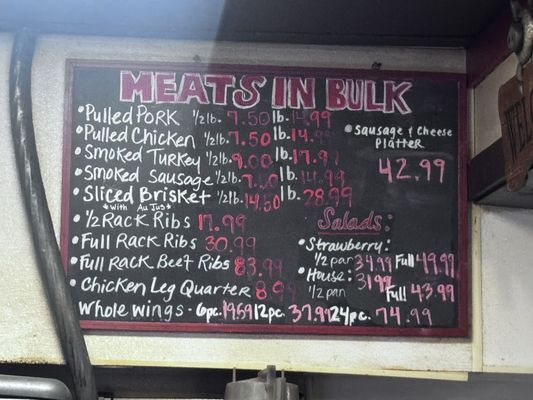 MEATS IN BULK
• Pulled Pork 1/2 lb. 7.50 lb. 14.99
• Pulled Chicken 1/2 lb. 7.50 lb. 14.99
• Smoked Turkey 1/2 lb. 9.00 lb. 17.97
• Smoked Sausage 1/2 lb. 7.50 lb. 14.99
• Sliced Brisket 1/2 lb. 14.50 lb. 28.99
*With Au Jus*
• 1/2 Rack Ribs 17.99
• Full Rack Ribs 30.99
• Full Rack Beef Ribs 83.99
• Chicken Leg Quarter 8.99
Whole wings - 6pc. 19.59 12pc. 37.99 24pc. 74.99
• Sausage & Cheese
Platter
42.99
Salads:
• Strawberry:
1/2 pan 34.99 Full 49.99
• House: 31.99
1/2 pan Full 43.99